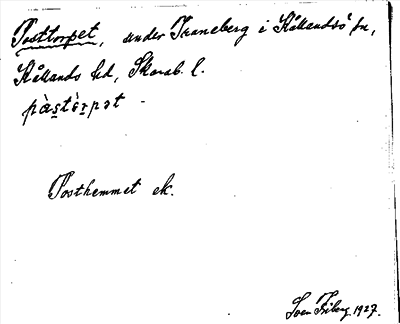 Posttorpet, under Traneberg i Kållandsö sn,
Kållands hd, Skarab. l.
pàstèrpət -
Posthemmet ek.
Sven Friberg 1927.